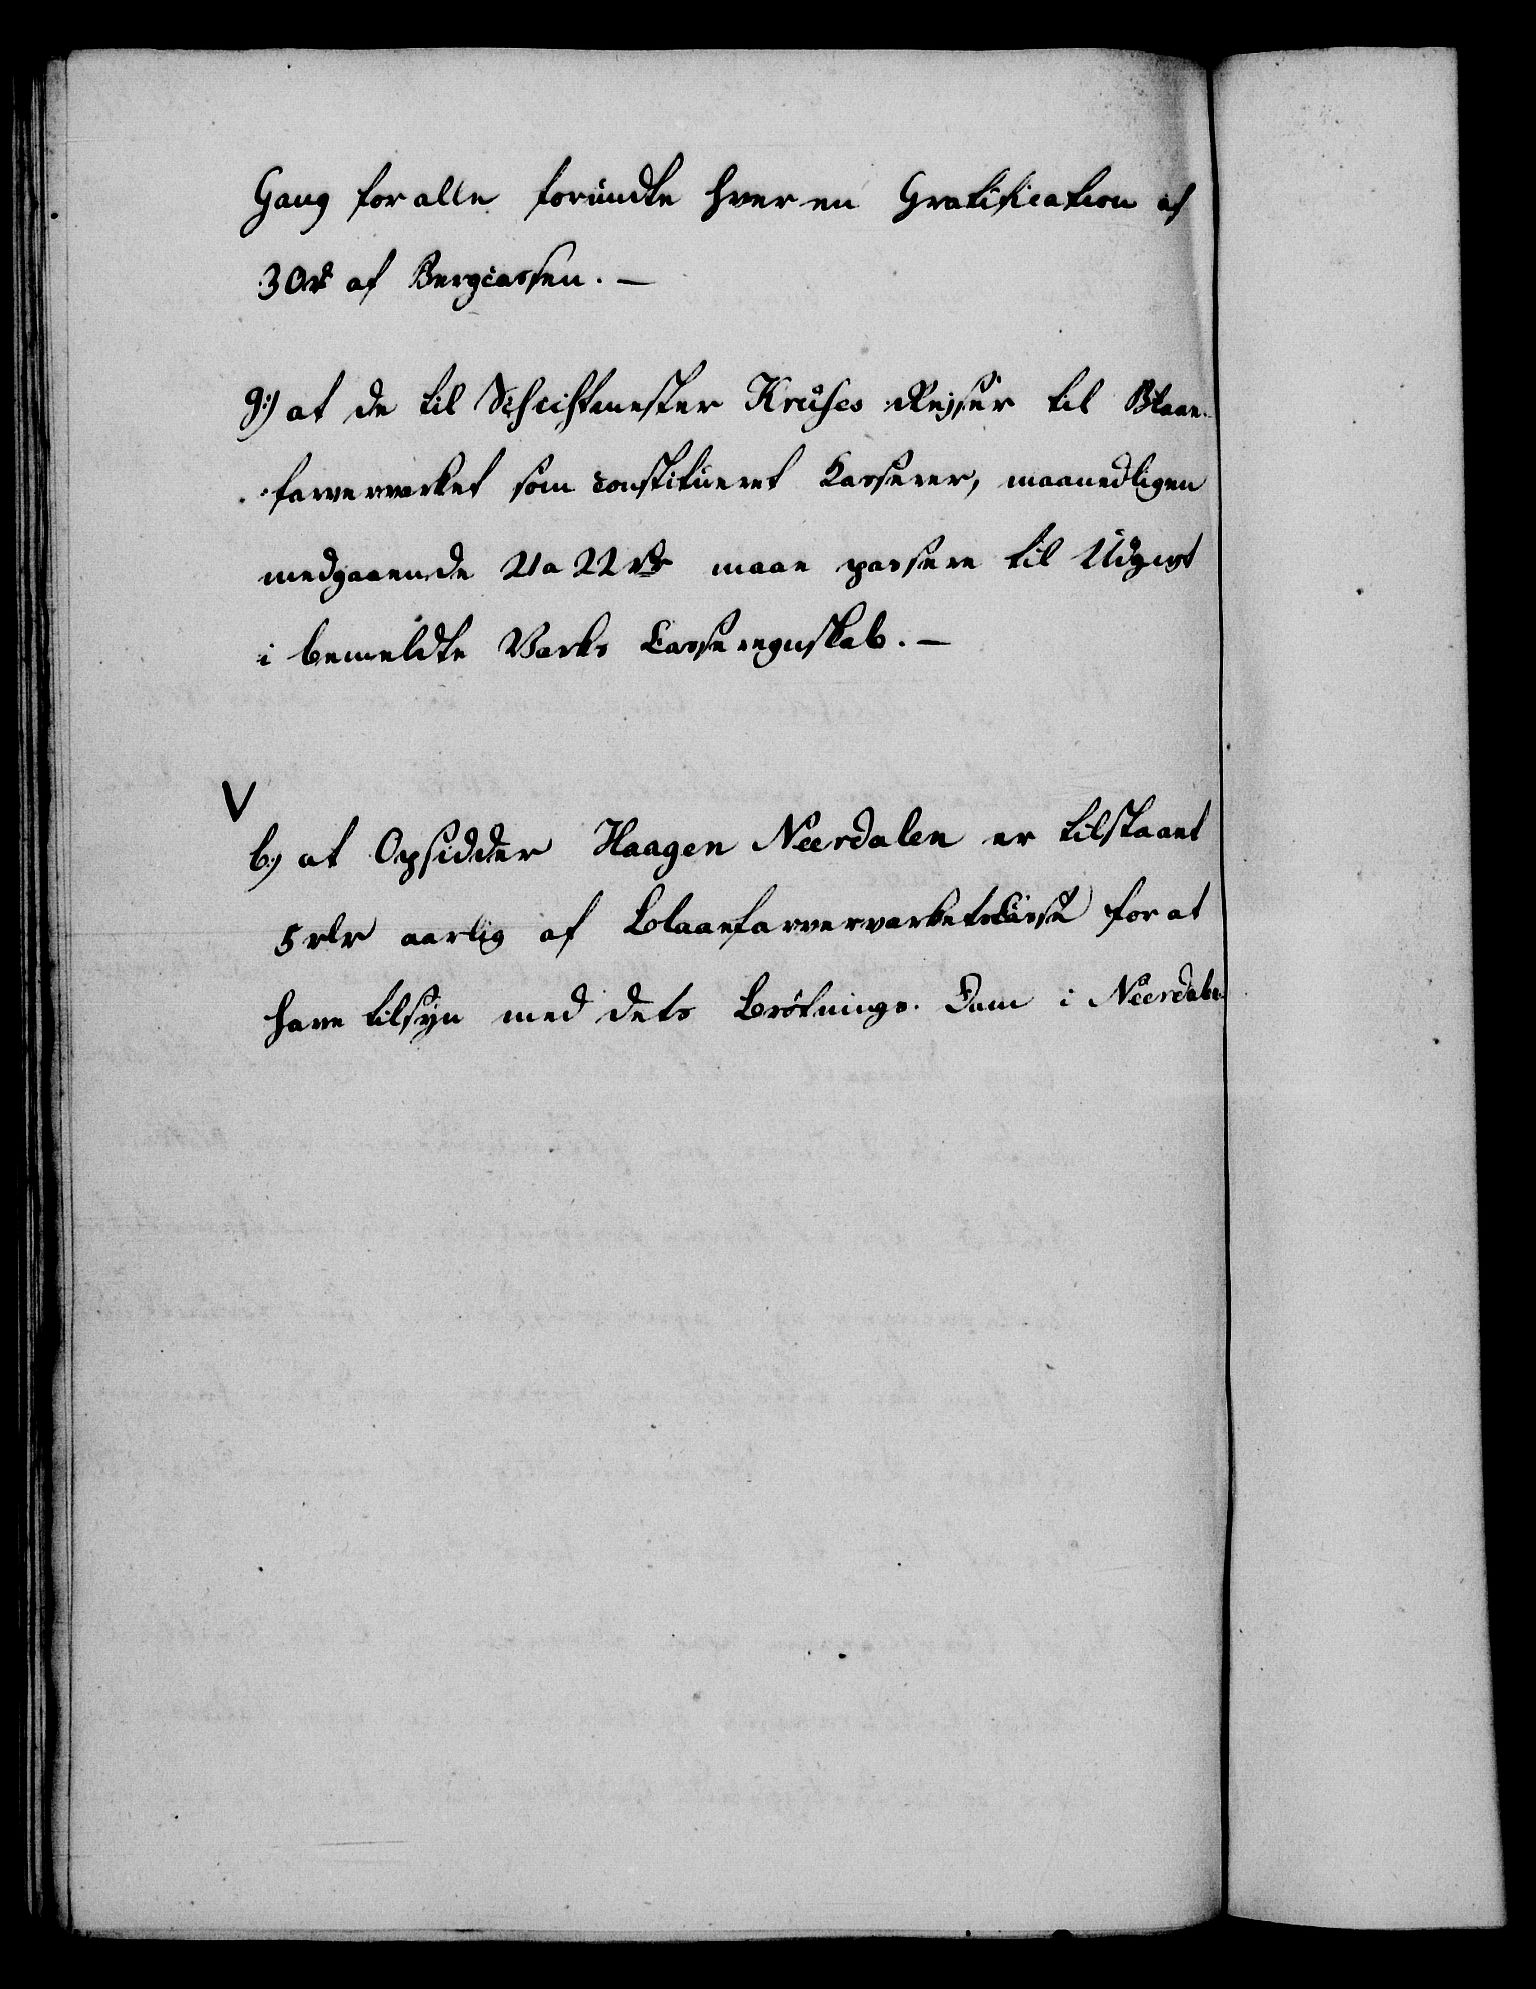 Gang for alle forundte hver en Gratification af
30 rd af Bergcassen. —
g:) at de til Schichtmester Kruses Rejser til Blaae-
farververket som constitueret Casserer, maanedligen
medgaaende 21 a 22 rd maae passere til Udgivt
i bemeldte Værks Casseregnskab. —
V
b:) at Opsidder Haagen Neerdalen er tilstaaet
5 rdr aarlig af Blaaefarververkets Casse for at
have tilsyn med dets Brötnings-Dam i Neerdalen